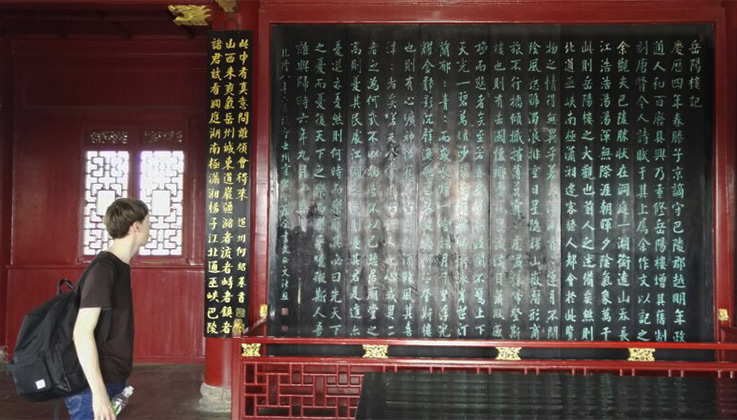 岳陽樓記
慶曆四年春滕子京謫守巴陵郡越明年政
通人和百廢具興乃重修岳陽樓增其舊制
刻唐賢今人詩賦于其上屬余作文以記之
予觀夫巴陵勝狀在洞庭一湖銜遠山吞長
江浩浩湯湯橫無際涯朝暉夕陰氣象萬千
此則岳陽樓之大觀也前人之述備矣然則
北通巫峽南極瀟湘遷客騷人多會於此覽
物之情得無異乎若夫霪雨霏霏連月不開
陰風怒號濁浪排空日星隱曜山岳潛形商
旅不行檣傾楫摧薄暮冥冥虎嘯猿啼登斯
樓也則有去國懷鄉憂讒畏譏滿目蕭然感
極而悲者矣至若春和景明波瀾不驚上下
天光一碧萬頃沙鷗翔集錦鱗游泳岸芷汀
蘭郁郁青青而或長煙一空皓月千里浮光
耀金靜影沉璧漁歌互答此樂何極登斯樓
也則有心曠神怡寵辱皆忘把酒臨風其喜
洋洋者矣嗟夫予嘗求古仁人之心或異二
者之為何哉不以物喜不以己悲居廟堂之
高則憂其民處江湖之遠則憂其君是進亦
憂退亦憂然則何時而樂耶其必曰先天下
之憂而憂後天下之樂而樂歟噫微斯人吾
誰與歸時六年九月十五日
諸君試看洞庭湖南極瀟湘揚子江北通巫峽巴陵
山西來爽氣岳州城東道巖疆瀦者流者峙者鎮者
此中有真意問誰領會得來 道州何紹基書